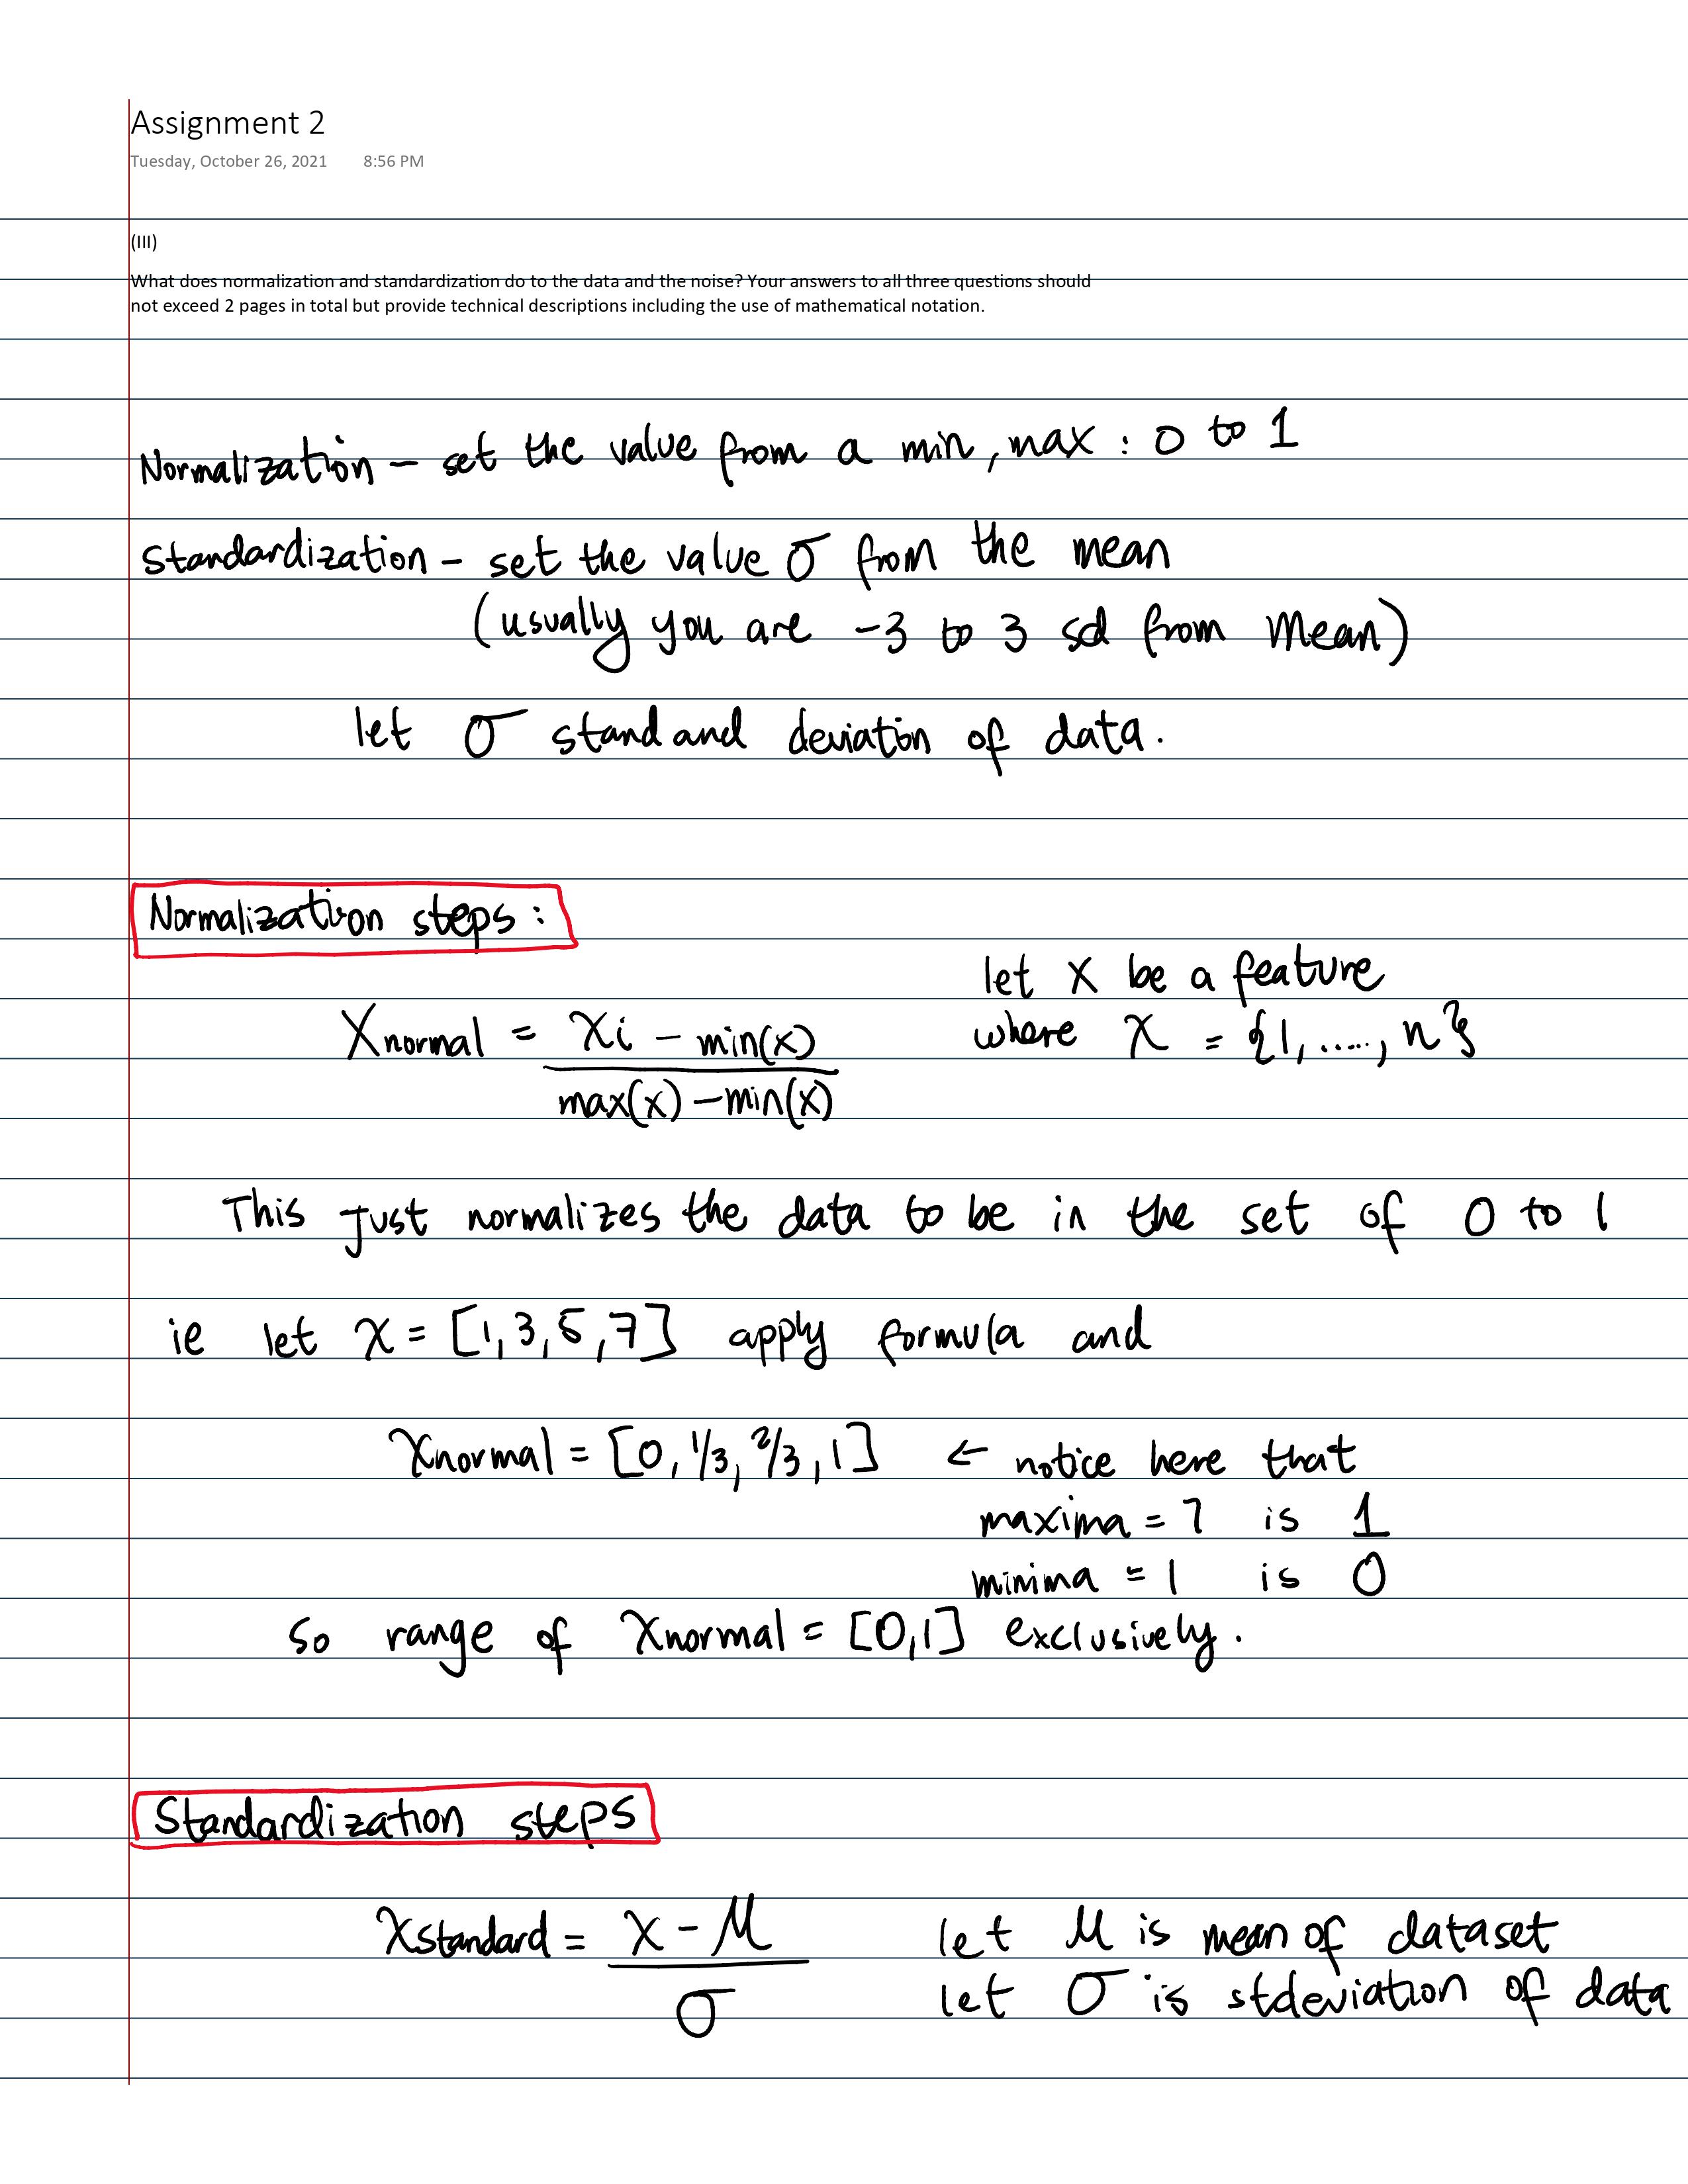 Assignment 2
Tuesday, October 26, 2021 8:56 PM
(III)
What does normalization and standardization do to the data and the noise? Your answers to all three questions should
not exceed 2 pages in total but provide technical descriptions including the use of mathematical notation.
Normalization – set the value from a min, max : 0 to 1
Standardization – set the value σ from the mean
(usually you are -3 to 3 sd from mean)
let σ standard deviation of data.
Normalization steps:
let X be a feature
where X = {1, ....., n}
Xnormal = xi - min(x)
max(x) - min(x)
This just normalizes the data to be in the set of 0 to 1
ie let x = [1, 3, 5, 7] apply formula and
Xnormal = [0, 1/3, 2/3, 1] ← notice here that
maxima = 7 is 1
minima = 1 is 0
so range of Xnormal = [0,1] exclusively.
Standardization steps
Xstandard = x - M
σ
let M is mean of dataset
let σ is stdeviation of data